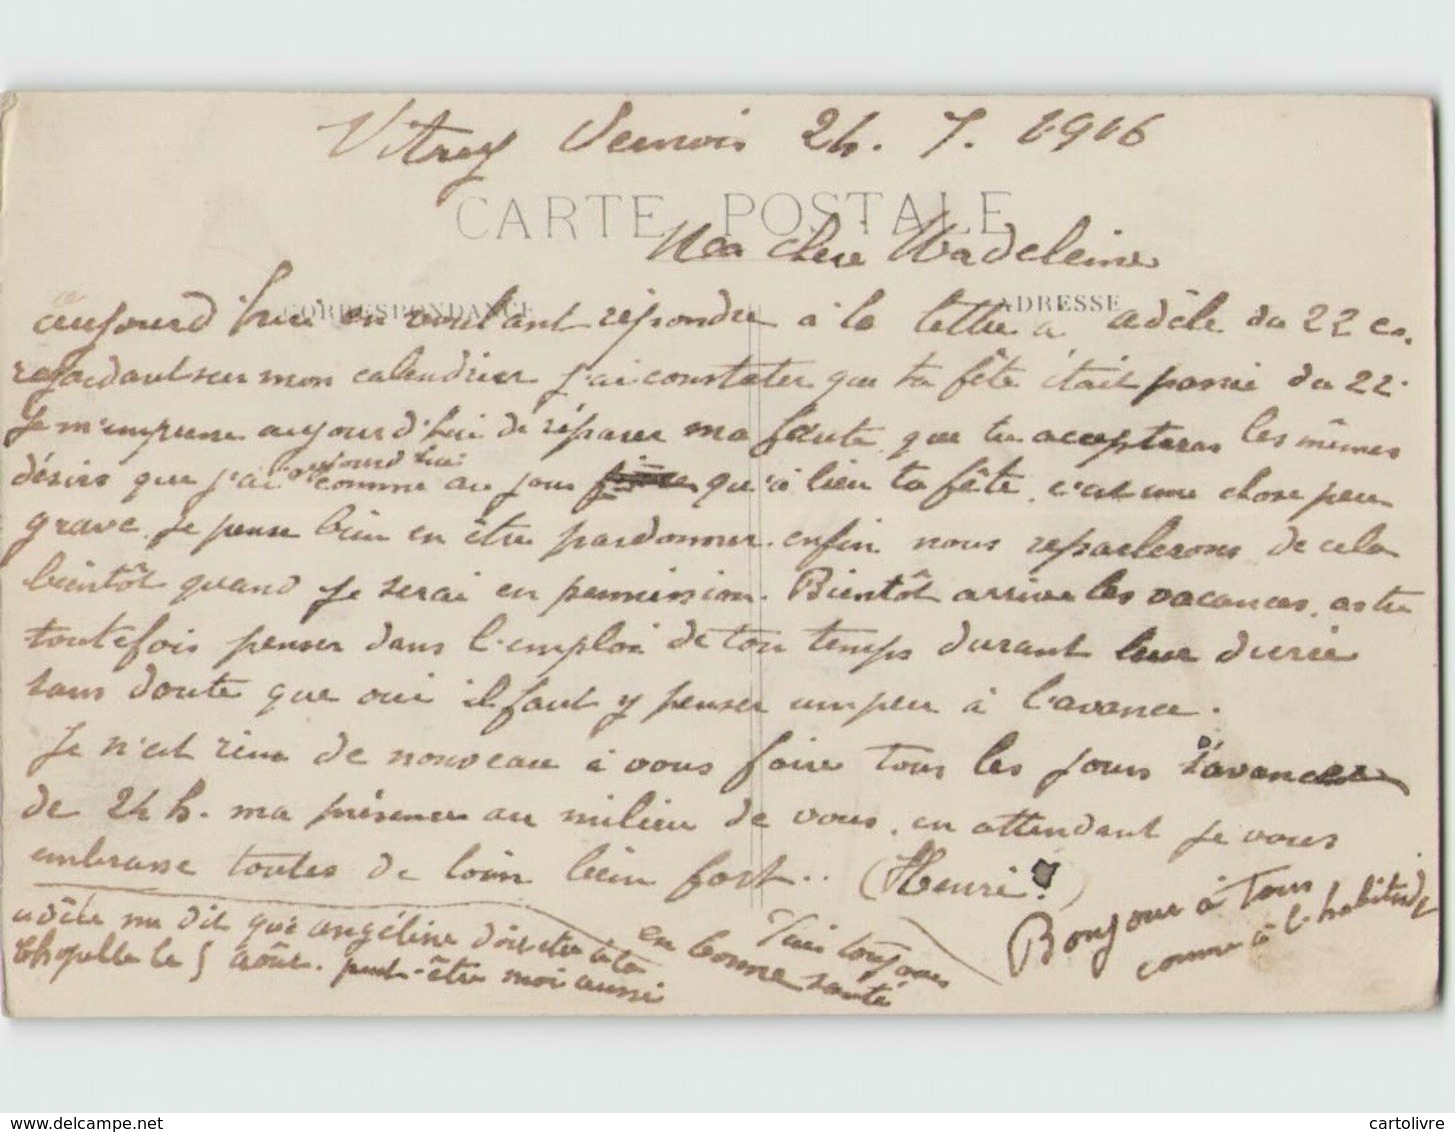 Vitrey Vernois 24. 7. 1916
CARTE POSTALE
Ma chère Madeleine
CORRESPONDANCE
ADRESSE
aujourd'hui en voulant répondre à la lettre a adèle du 22 co.
regardant sur mon calendrier j'ai constater que ta fête était passé du 22.
Je m'empresse aujourd'hui de réparer ma faute, que tu accepteras les mêmes
désirs que j'ai aujourd'hui comme au jour qu'à lieu ta fête, c'est une chose peu
grave. Je pense bien en être pardonner. enfin nous reparlerons de cela
bientôt quand je serai en permission. Bientôt arrive les vacances, as tu
toutefois penser dans l'emploi de ton temps durant leur durée
sans doute que oui il faut y penser un peu à l'avance.
Je n'est rien de nouveau à vous faire tous les jours s'avance
de 24 h. ma présence au milieu de vous, en attendant je vous
embrasse toutes de loin bien fort.. (Henri)
adèle me dit que angéline doit être à la
Chapelle le 5 août. peut-être moi aussi
en bonne santé
toujours
Bonjour à Tous
comme à l'habitude
cartolivre